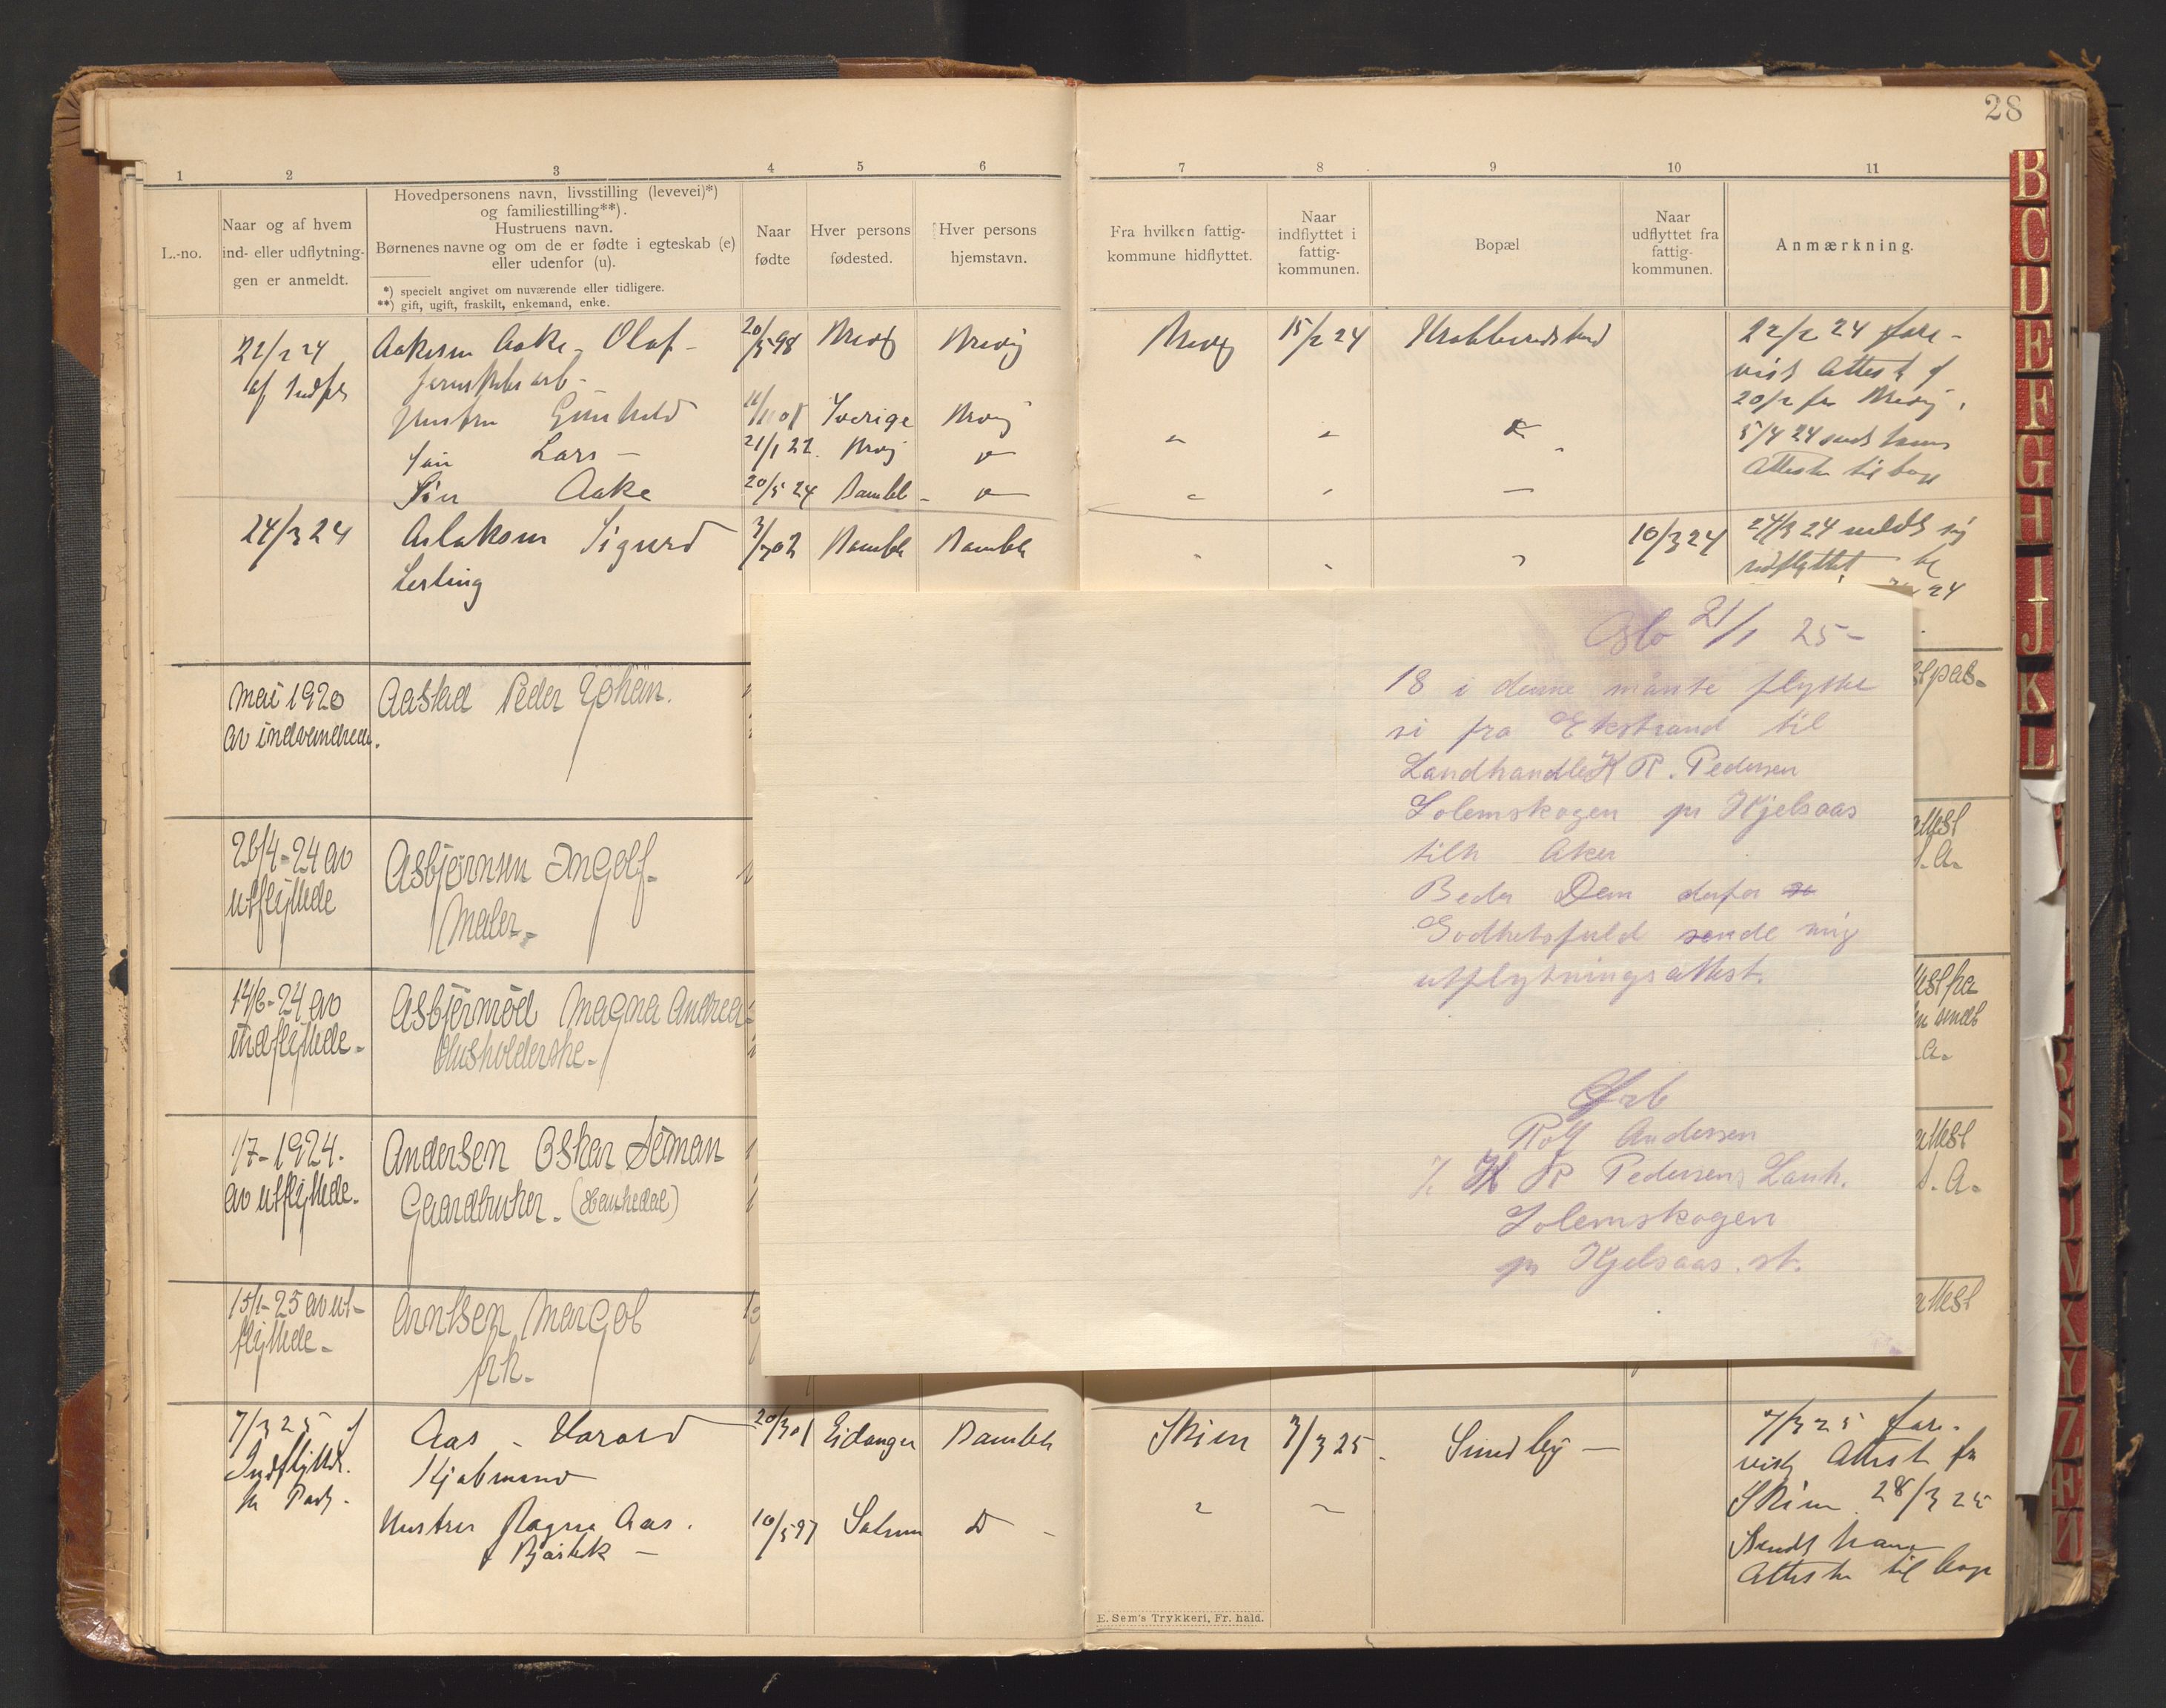 28
1 2 3 4 5 6 7 8 9 10 11
L.-no.
Naar og af hvem
ind- eller udflytnin-
gen er anmeldt.
Hovedpersonens navn, livsstilling (levevei)*)
og familiestilling**).
Hustruens navn.
Børnenes navne og om de er fødte i egteskab (e)
eller udenfor (u).
*) specielt angivet om nuværende eller tidligere.
**) gift, ugift, fraskilt, enkemand, enke.
Naar
fødte
Hver persons
fødested.
Hver persons
hjemstavn.
Fra hvilken fattig-
kommune hidflyttet.
Naar
indflyttet i
fattig-
kommunen.
Bopæl
Naar
udflyttet fra
fattig-
kommunen.
Anmærkning.
22/2 24
Aakesen Aake Olaf
20/5 98
Brevig
Brevig
Brevig
15/2 24
22/2 24 fore-
vist Attest
20/2 fra Brevig.
Hustru Gunhild
Sverige
Brevig
Søn Lars
21/1 22
Brevig
5/4 24 sendt hans
Attest tilbage
Søn Aake
20/5 24
Bamble
24/3 24
Aslaksen Sigurd
Bamble
Bamble
10/3 24
24/3 24 meldt sig
udflyttet
24
Mai 1920
av indvandrede.
Aastad Peder Johan.
26/4-24 av
utflyttede
Asbjørnsen Ingolf-
Maler-
14/6-24 av
indflyttede-
Asbjørnrød Magna Andrea
Husholderske-
1/7-1924.
av utflyttede-
Andersen Oskar Siman
Gaardbruker- (Hanhedal)
15/1-25 av ut-
flyttede-
Arntsen Margot
frk.
attest
attest
attest
Oslo 21/1 25-
18 i denne månte flytte
vi fra Ekstrand til
Landhandler K R. Pedersen
Solemskogen pr Kjelsaas
Aker
Beder Dem derfor
Godhetsfuld sende mig
utflytningsattest.
Ærb
Rolf Andersen
K R Pedersens Lanh.
Solemskogen
pr Kjelsaas. st.
7/3 25 af
Indflyttede.
Aas - Harald
Kjøbmand
20/3 01
Eidanger
Bamble
Skien
3/3 25
Sundby
7/3 25 fore-
vist Attest fra
Skien 28/3 25
Sendt ham
Attesten tilbage
Hustru Ragna Aas.
10/5 97
Solum
E. Sem's Trykkeri, Fr.hald.
B
C
D
E
F
G
H
I
J
K
L